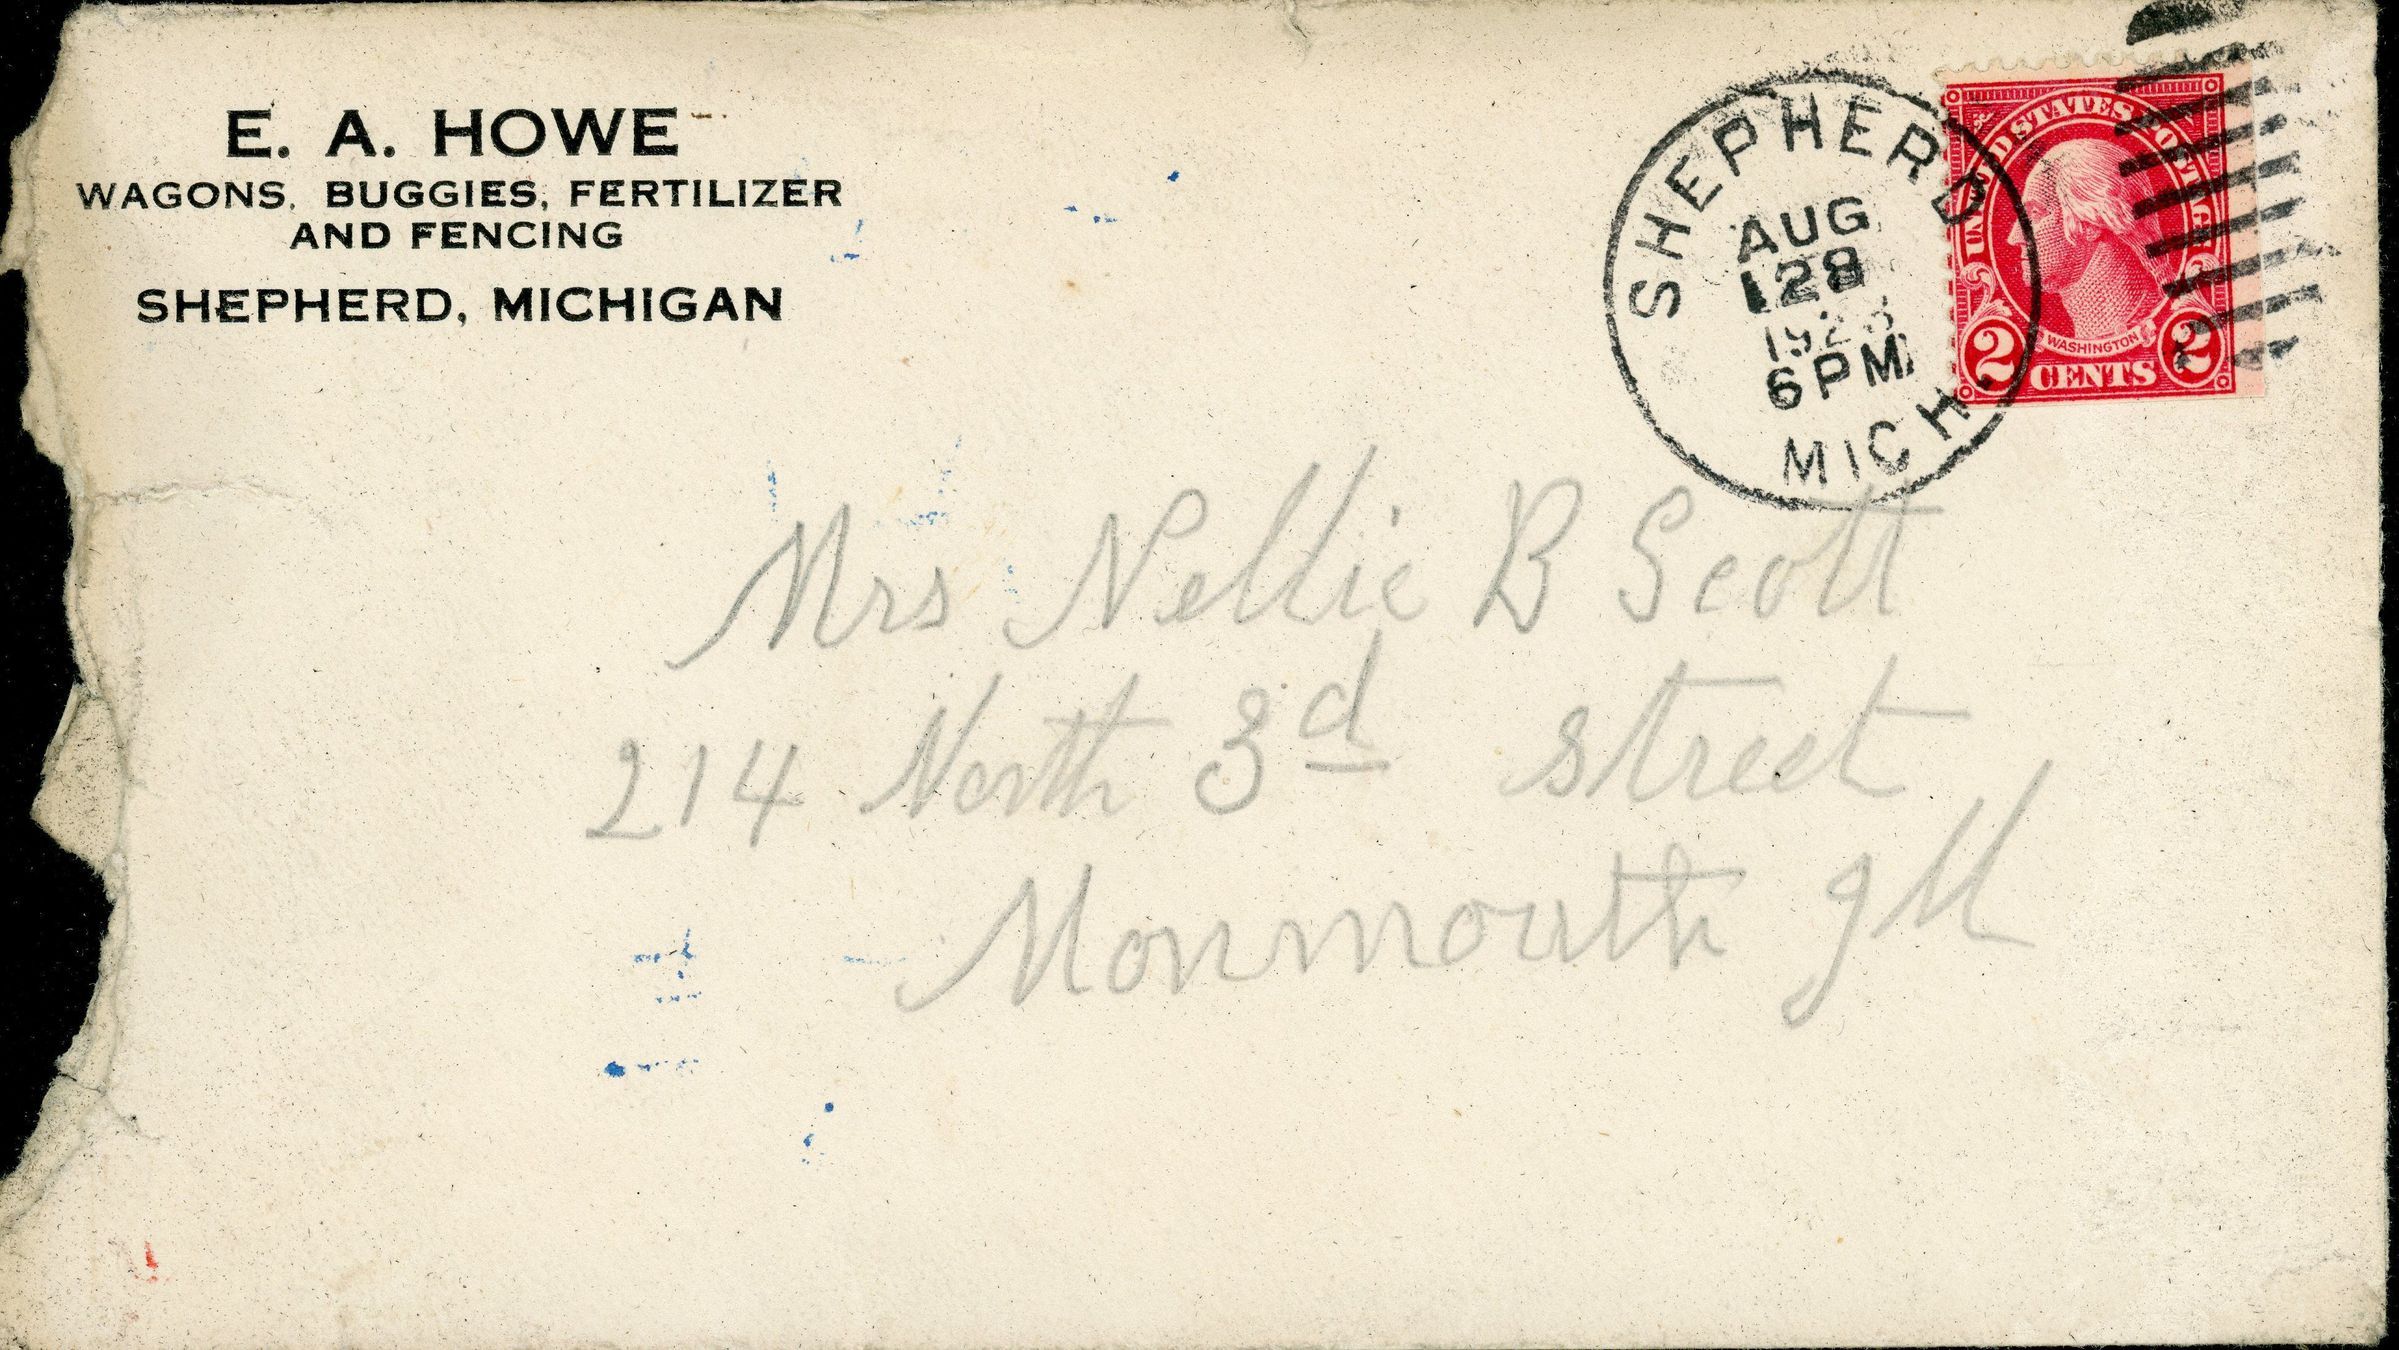 E. A. HOWE
WAGONS, BUGGIES, FERTILIZER
AND FENCING
SHEPHERD, MICHIGAN
SHEPHERD
AUG
28
6 PM
MICH.
UNITED STATES POSTAGE
WASHINGTON
2 CENTS 2
Mrs Nellie B Scott
214 North 3d street
Monmouth Ill